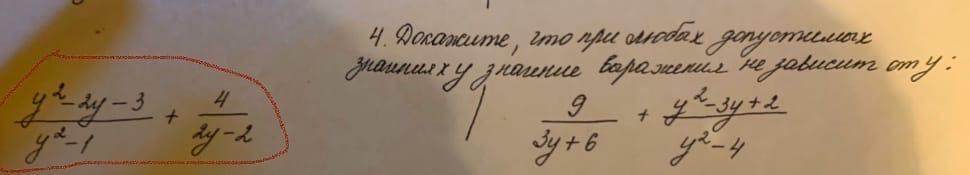 4. Докажите, что при любых допустимых
значениях у значение выражения не зависит от у:
(y²-2y-3)/(y²-1) + 4/(2y-2) | 9/(3y+6) + (y²-3y+2)/(y²-4)